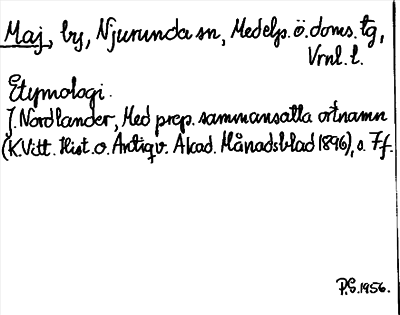 Maj, by, Njurunda sn, Medelp. ö. doms. tg,
Vrnl. l.
Etymologi.
J. Nordlander, Med prep. sammansatta ortnamn
(K. Vitt. Hist. o. Antiqv. Akad. Månadsblad 1896), s. 7 f.
P.G. 1956.